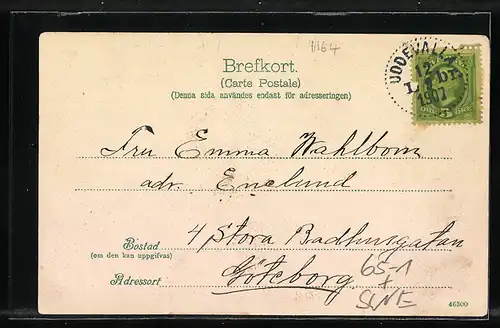 1164
Brefkort.
(Carte Postale)
(Denna sida användes endast för adresseringen)
UDDEVALLA
12
1907
Fru Emma Wahlbom
adr. Enelund
Bostad
(om den kan uppgifvas)
4 Stora Badhusgatan
Adressort
Göteborg
65-1
+
46300